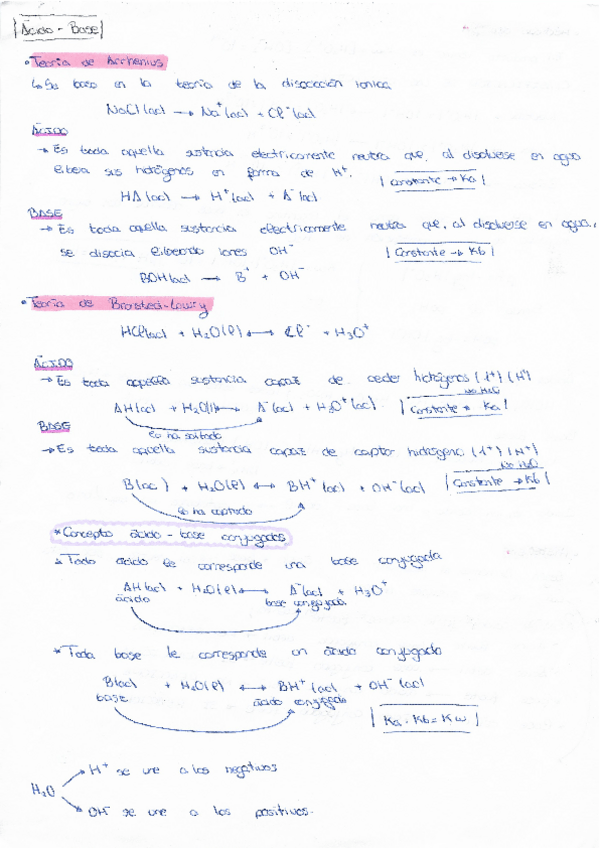 Ácido - Base
• Teoría de Arrhenius
↳ Se basa en la teoría de la disociación iónica
NaCl(ac) → Na⁺(ac) + Cl⁻(ac)
ÁCIDO
→ Es toda aquella sustancia electricamente neutra que, al disolverse en agua
libera sus hidrógenos en forma de H⁺. | Constante → Ka |
HA(ac) → H⁺(ac) + A⁻(ac)
BASE
→ Es toda aquella sustancia electricamente neutra que, al disolverse en agua,
se disocia liberando iones OH⁻ | Constante → Kb |
BOH(ac) → B⁺ + OH⁻
• Teoría de Bronsted-Lowry
HCl(ac) + H₂O(l) ↔ Cl⁻ + H₃O⁺
ÁCIDO
→ Es toda aquella sustancia capaz de ceder hidrógenos (1⁺) (H⁺)
No H₂O
AH(ac) + H₂O(l) ↔ A⁻(ac) + H₃O⁺(ac) | Constante → Ka |
Lo ha soltado
BASE
→ Es toda aquella sustancia capaz de captar hidrógeno (1⁺) (H⁺)
No H₂O
B(ac) + H₂O(l) ↔ BH⁺(ac) + OH⁻(ac) | Constante → Kb |
Lo ha captado
* Concepto ácido - base conjugados
* Todo ácido le corresponde una base conjugada
AH(ac) + H₂O(l) ↔ A⁻(ac) + H₃O⁺
ácido base conjugada
* Toda base le corresponde un ácido conjugado
B(ac) + H₂O(l) ↔ BH⁺(ac) + OH⁻(ac)
base ácido conjugado
| Ka · Kb = Kw |
H⁺ se une a los negativos
H₂O
OH⁻ se une a los positivos.